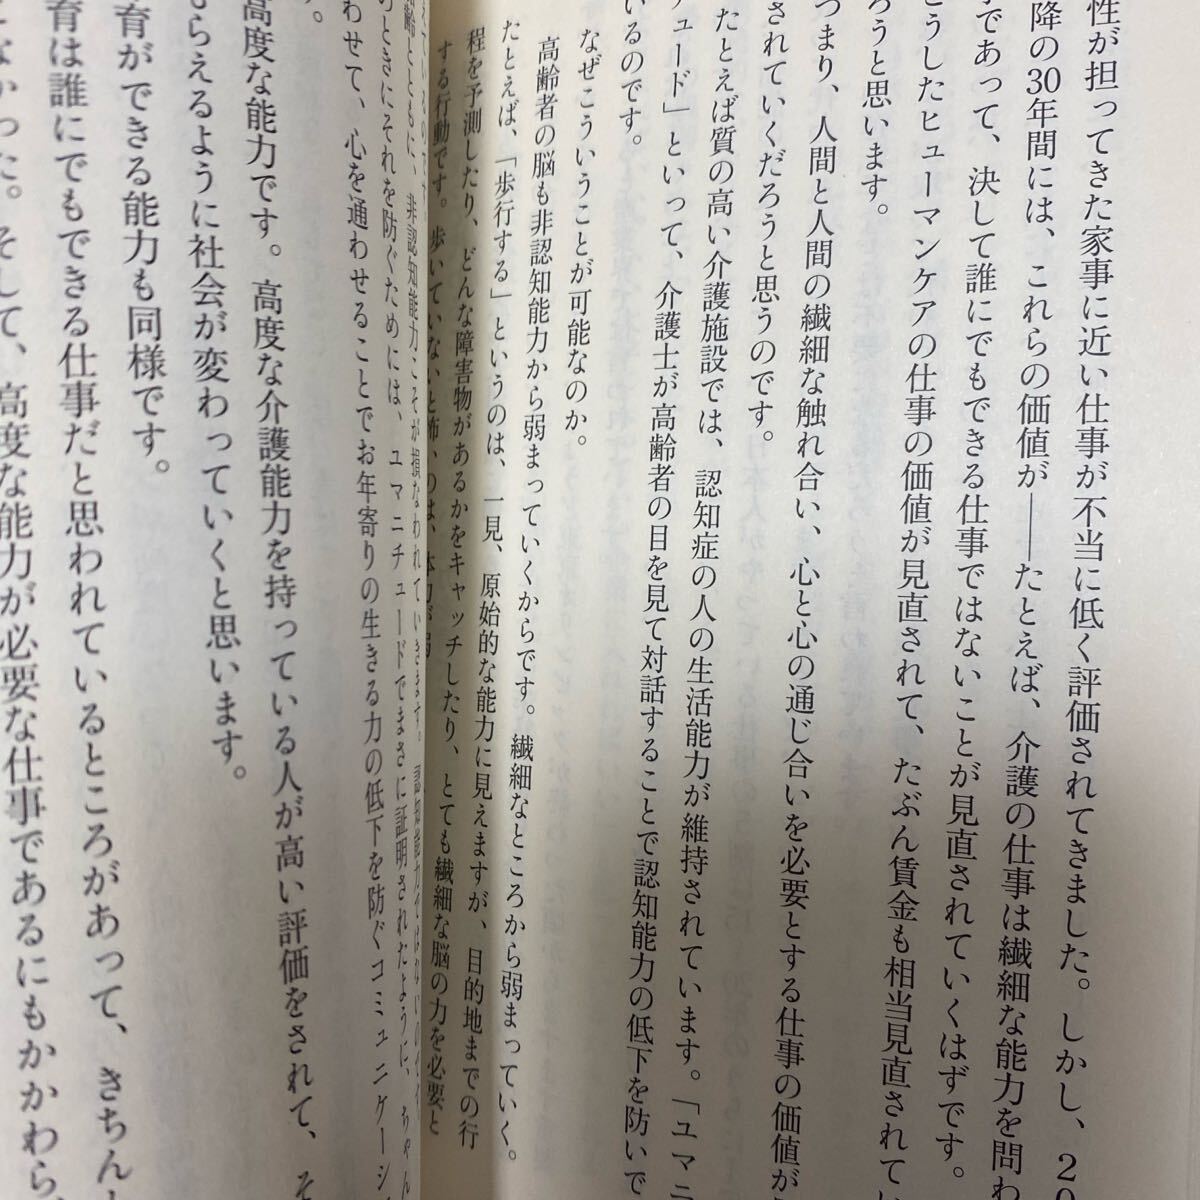 性が担ってきた家事に近い仕事が不当に低く評価されてきました。しかし、20
降の30年間には、これらの価値が――たとえば、介護の仕事は繊細な能力を問わ
であって、決して誰にでもできる仕事ではないことが見直されていくはずです。
こうしたヒューマンケアの仕事の価値が見直されて、たぶん賃金も相当見直されてい
ろうと思います。
つまり、人間と人間の繊細な触れ合い、心と心の通じ合いを必要とする仕事の価値が
されていくだろうと思うのです。
たとえば質の高い介護施設では、認知症の人の生活能力が維持されています。「ユマニ
チュード」といって、介護士が高齢者の目を見て対話することで認知能力の低下を防いで
いるのです。
なぜこういうことが可能なのか。
高齢者の脳も非認知能力から弱まっていくからです。繊細なところから弱まっていく。
たとえば、「歩行する」というのは、一見、原始的な能力に見えますが、目的地までの行
程を予測したり、どんな障害物があるかをキャッチしたり、とても繊細な脳の力を必要と
する行動です。歩いていないと怖いのは、体力が弱
齢とともに、非認知能力こそが損なわれていきます。認知能力ではないのです。
のときにそれを防ぐためには、ユマニチュードでまさに証明されたように、ちゃん
わせて、心を通わせることでお年寄りの生きる力の低下を防ぐコミュニケーシ
す。
高度な能力です。高度な介護能力を持っている人が高い評価をされて、そ
もらえるように社会が変わっていくと思います。
育ができる能力も同様です。
育は誰にでもできる仕事だと思われているところがあって、きちん
なかった。そして、高度な能力が必要な仕事であるにもかかわら